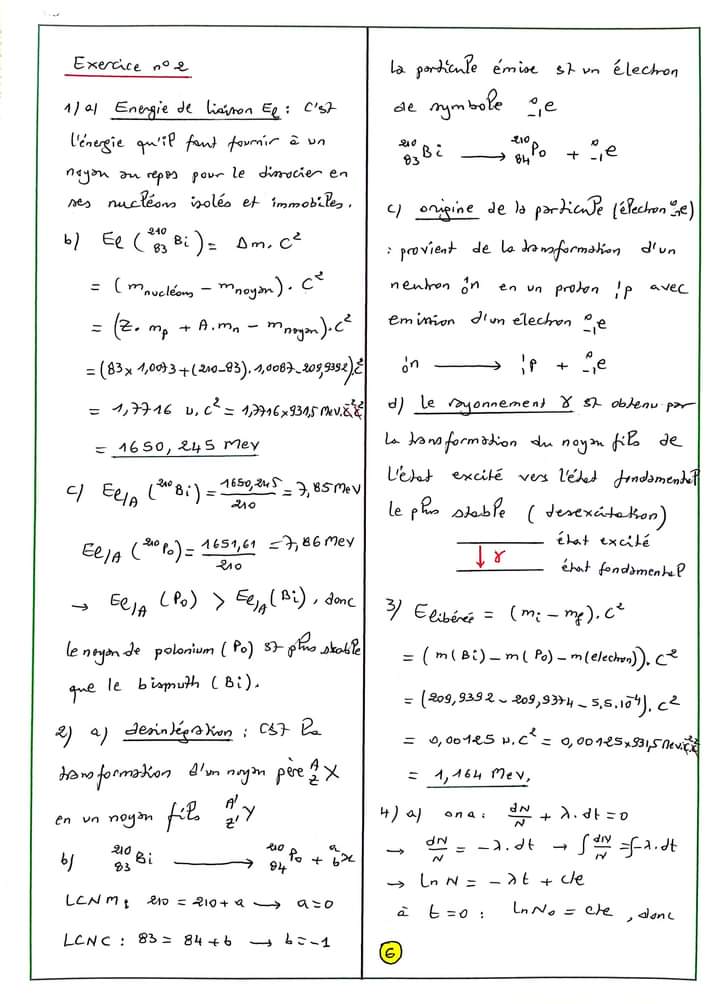 Exercice n° 2
1) a) Energie de liaison El : C'st
l'énergie qu'il faut fournir à un
noyau au repos pour le dissocier en
ses nucléons isolés et immobiles.
b) El (²¹⁰₈₃Bi) = Δm. C²
= (m nucléons − m noyau). C²
= (Z. mp + A. mn − m noyau). C²
= (83 x 1,0073 + (210-83). 1,0087 - 209,9392) c²
= 1,7716 u. c² = 1,7716 x 931,5 MeV. c⁻². c²
= 1650,245 MeV
c) El/A (²¹⁰Bi) = 1650,245/210 = 7,85 MeV
El/A (²¹⁰Po) = 1651,61/210 = 7,86 MeV
→ El/A (Po) > El/A (Bi), donc
le noyau de polonium (Po) st plus stable
que le bismuth (Bi).
2) a) desintégration : C'st la
transformation d'un noyau père ᴬzX
en un noyau fils ᴬ'z'Y
b) ²¹⁰₈₃Bi → ²¹⁰₈₄Po + ᵃbx
LCNM : 210 = 210 + a → a = 0
LCNC : 83 = 84 + b → b = -1
La particule émise st un électron
de symbole ⁰₋₁e
²¹⁰₈₃Bi → ²¹⁰₈₄Po + ⁰₋₁e
c) origine de la particule (électron ⁰₋₁e)
: provient de la transformation d'un
neutron ¹₀n en un proton ¹₁p avec
emission d'un electron ⁰₋₁e
¹₀n → ¹₁p + ⁰₋₁e
d) le rayonnement γ st obtenu par
la transformation du noyau fils de
l'état excité vers l'état fondamental
le plus stable (desexcitation)
état excité
↓ γ
état fondamental
3) E libérée = (mi − mf). C²
= (m(Bi) − m(Po) − m(electron)). C²
= (209,9392 - 209,9374 - 5,5.10⁻⁴). c²
= 0,00125 u. c² = 0,00125 x 931,5 MeV. c⁻². c²
= 1,164 MeV.
4) a) on a : dN/N + λ. dt = 0
→ dN/N = −λ. dt → ∫dN/N = ∫−λ. dt
→ Ln N = −λt + cte
à t = 0 : Ln N₀ = cte, donc
6